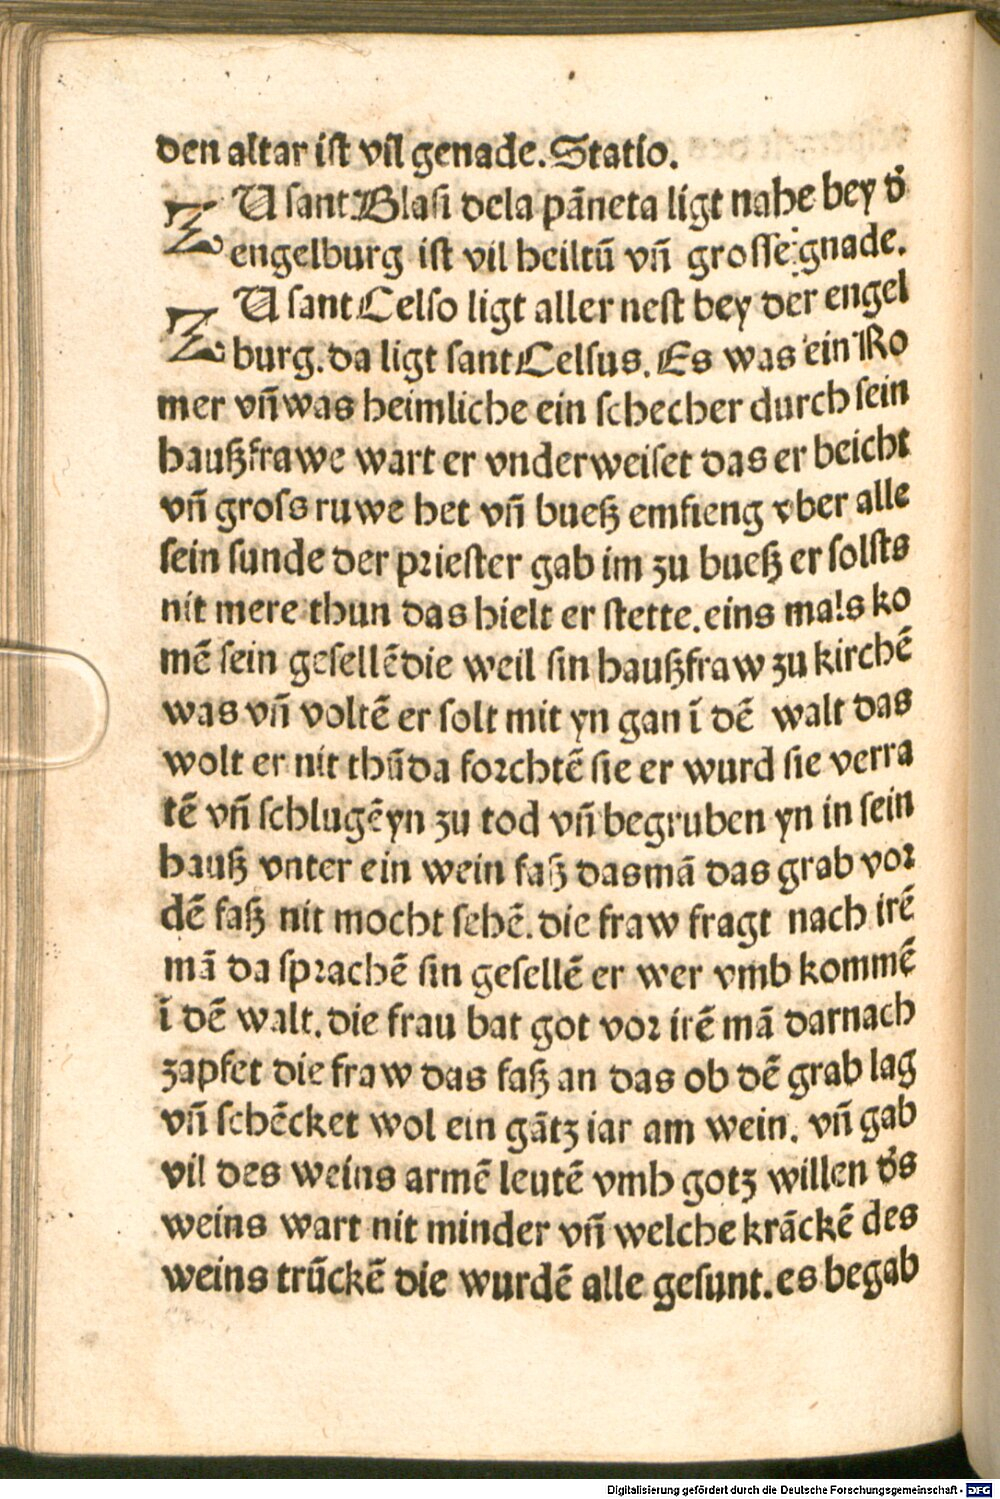 den altar ist vil genade. Statio.
ZU sant Blasi dela pãneta ligt nahe bey d̾
engelburg ist vil heiltũ vñ grosse gnade.
ZU sant Celso ligt aller nest bey der engel
burg. da ligt sant Celsus. Es was ein Ro
mer vñ was heimliche ein schecher durch sein
haußfrawe wart er vnderweiset das er beicht
vñ gross ruwe het vñ bueß emfieng vber alle
sein sunde der priester gab im zu bueß er solsts
nit mere thun das hielt er stette. eins mals ko
mẽ sein gesellẽ die weil sin haußfraw zu kirchẽ
was vñ voltẽ er solt mit yn gan ĩ dẽ walt das
wolt er nit thũ da forchtẽ sie er wurd sie verra
tẽ vñ schlugẽ yn zu tod vñ begruben yn in sein
hauß vnter ein wein faß das mã das grab vor
dẽ faß nit mocht sehẽ. die fraw fragt nach irẽ
mã da sprachẽ sin gesellẽ er wer vmb kommẽ
ĩ dẽ walt. die frau bat got vor irẽ mã darnach
zapfet die fraw das faß an das ob dẽ grab lag
vñ schẽcket wol ein gãtz iar am wein. vñ gab
vil des weins armẽ leutẽ vmb gotz willen d̾s
weins wart nit minder vñ welche krãckẽ des
weins trũckẽ die wurdẽ alle gesunt. es begab
Digitalisierung gefördert durch die Deutsche Forschungsgemeinschaft - DFG